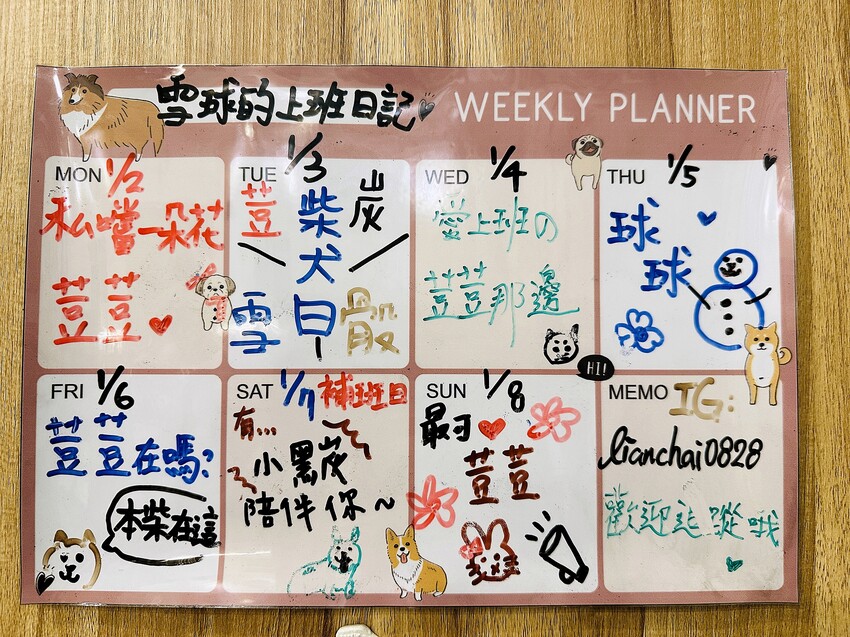 雪球的上班日記
WEEKLY PLANNER
MON 1/2
私嚐一朵花
荳荳
TUE 1/3
荳 柴犬日 炭
雪 骰
WED 1/4
愛上班の
荳荳那邊
THU 1/5
球
球
HI!
FRI 1/6
荳荳在嗎?
本柴在這
SAT 1/7 補班日
有...
小黑炭
陪伴你~
SUN 1/8
最可
荳荳
MEMO IG:
lianchai0828
歡迎追蹤哦